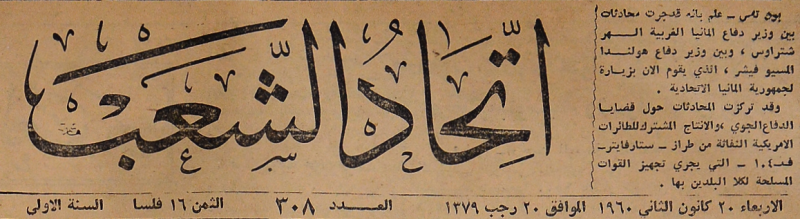 اتحاد الشعب
بون تاس ـ علم بانه قد جرت محادثات
بين وزير دفاع المانيا الغربية الهر
شتراوس ، وبين وزير دفاع هولندا
المسيو فيشر ، الذي يقوم الان بزيارة
لجمهورية المانيا الاتحادية .
وقد تركزت المحادثات حول قضايا
الدفاع الجوي ، والانتاج المشترك للطائرات
الامريكية النفاثة من طراز ـ ستارفايتر ـ
ف ـ ١٠٤ ـ التي يجري تجهيز القوات
المسلحة لكلا البلدين بها .
الاربعاء ٢٠ كانون الثاني ١٩٦٠ الموافق ٢٠ رجب ١٣٧٩ العدد ٣٠٨ الثمن ١٦ فلسا السنة الاولى